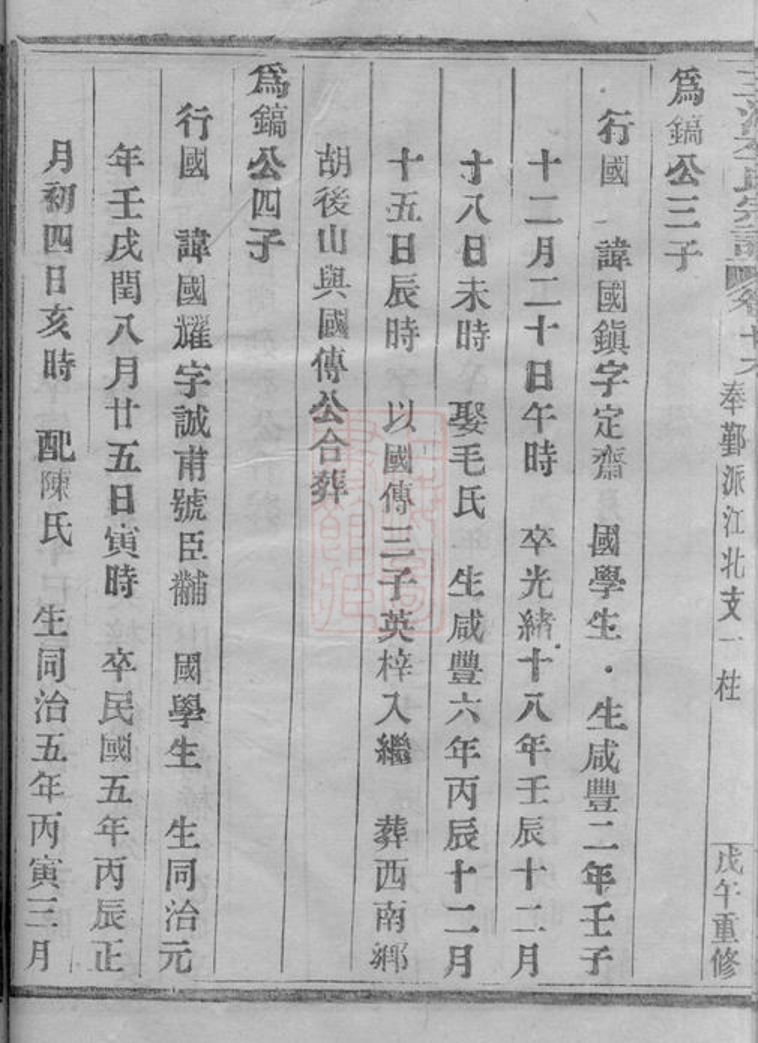 氏宗譜 卷十六 奉鄞派江北支一柱 戊午重修
爲鎬公三子
行國 諱國鎮字定齋 國學生 生咸豐二年壬子
十二月二十日午時 卒光緒十八年壬辰十二月
十八日未時 娶毛氏 生咸豐六年丙辰十二月
十五日辰時 以國傳三子英梓入繼 葬西南鄉
胡後山與國傳公合葬
爲鎬公四子
行國 諱國耀字誠甫號臣黼 國學生 生同治元
年壬戌閏八月廿五日寅時 卒民國五年丙辰正
月初四日亥時 配陳氏 生同治五年丙寅三月